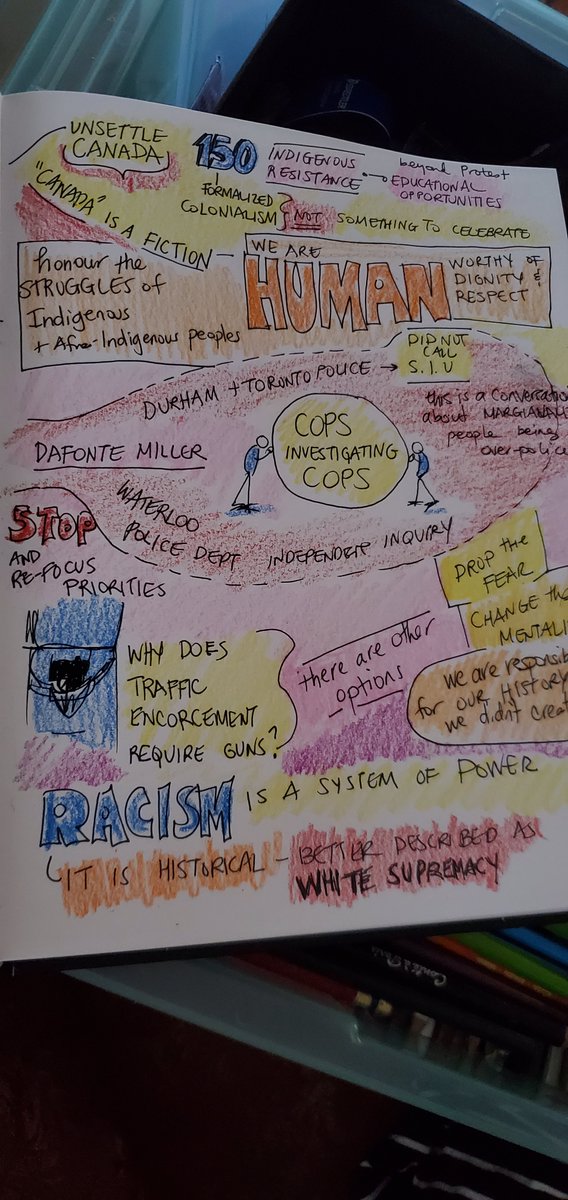 UNSETTLE
CANADA
150
INDIGENOUS
RESISTANCE
beyond Protest
EDUCATIONAL
OPPORTUNITIES
FORMALIZED
COLONIALISM
NOT SOMETHING TO CELEBRATE
"CANADA" IS A FICTION
WE ARE
HUMAN
WORTHY OF
DIGNITY &
RESPECT
honour the
STRUGGLES of
Indigenous
+ Afro-Indigenous peoples
DURHAM + TORONTO POLICE
DID NOT
CALL
S.I.U
this is a conversation
about
people being
DAFONTE MILLER
COPS
INVESTIGATING
COPS
WATERLOO
POLICE DEPT INDEPENDENT INQUIRY
STOP
AND
RE-FOCUS
PRIORITIES
DROP the
FEAR
CHANGE the
WHY DOES
TRAFFIC
ENCORCEMENT
REQUIRE GUNS?
there are other
options
we are
for our HISTORY
we didn't
RACISM IS A SYSTEM OF POWER
IT IS HISTORICAL - BETTER DESCRIBED AS
WHITE SUPREMACY